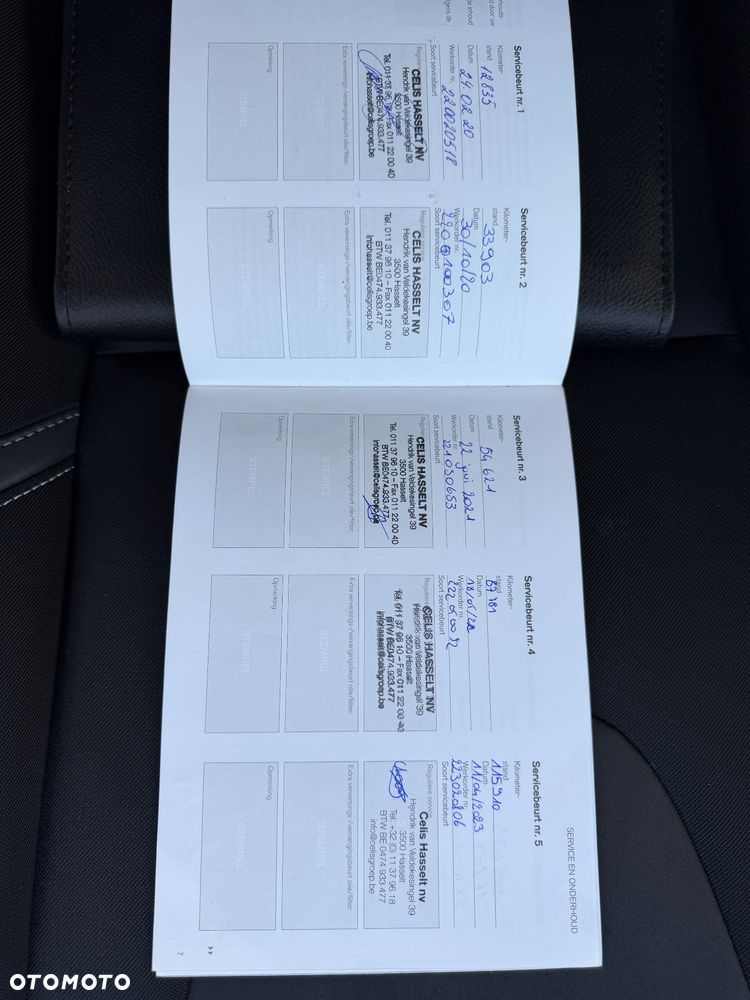 SERVICE EN ONDERHOUD
Servicebeurt nr. 1
Kilometer-
stand 12835
Datum 24.02.20
Werkorder nr. 220020518
Soort servicebeurt
CELIS HASSELT NV
Hendrik van Veldekesingel 39
3500 Hasselt
Fax 011 22 00 40
BTW BE0474.933.477
infohasselt@celisgroep.be
Extra verversings-/vervangingsbeurt olie/filter:
STEMPEL
Opmerking
STEMPEL
Servicebeurt nr. 2
Kilometer-
stand 33903
Datum 30/10/20
Werkorder nr.
Soort servicebeurt
Reguliere service
CELIS HASSELT NV
Hendrik van Veldekesingel 39
3500 Hasselt
Tel. 011 37 96 10 – Fax 011 22 00 40
BTW BE0474.933.477
infohasselt@celisgroep.be
Extra verversings-/vervangingsbeurt olie/filter:
STEMPEL
Opmerking
STEMPEL
Servicebeurt nr. 3
Kilometer-
stand 54621
Datum 22 juni 2021
Werkorder nr. 221050653
Soort servicebeurt
Reguliere
CELIS HASSELT NV
Hendrik van Veldekesingel 39
3500 Hasselt
Tel. 011 37 96 10 – Fax 011 22 00 40
BTW BE0474.933.477
infohasselt@celisgroep.be
Extra verversings-/vervangingsbeurt olie/filter:
STEMPEL
Opmerking
STEMPEL
Servicebeurt nr. 4
Kilometer-
stand 87181
Datum 18/05/22
Werkorder nr.
Soort servicebeurt
Reguliere
CELIS HASSELT NV
Hendrik van Veldekesingel 39
3500 Hasselt
Tel. 011 37 96 10 – Fax 011 22 00 40
BTW BE0474.933.477
infohasselt@celisgroep.be
Extra verversings-/vervangingsbeurt olie/filter:
STEMPEL
Opmerking
STEMPEL
Servicebeurt nr. 5
Kilometer-
stand 115910
Datum 11/04/2023
Werkorder nr.
Soort servicebeurt
Reguliere service
Celis Hasselt nv
Hendrik van Veldekesingel 39
3500 Hasselt
Tel. +32 (0) 11 37 96 18
BTW BE 0474 933 477
info@celisgroep.be
Extra verversings-/vervangingsbeurt olie/filter:
STEMPEL
Opmerking
STEMPEL
7
OTOMOTO